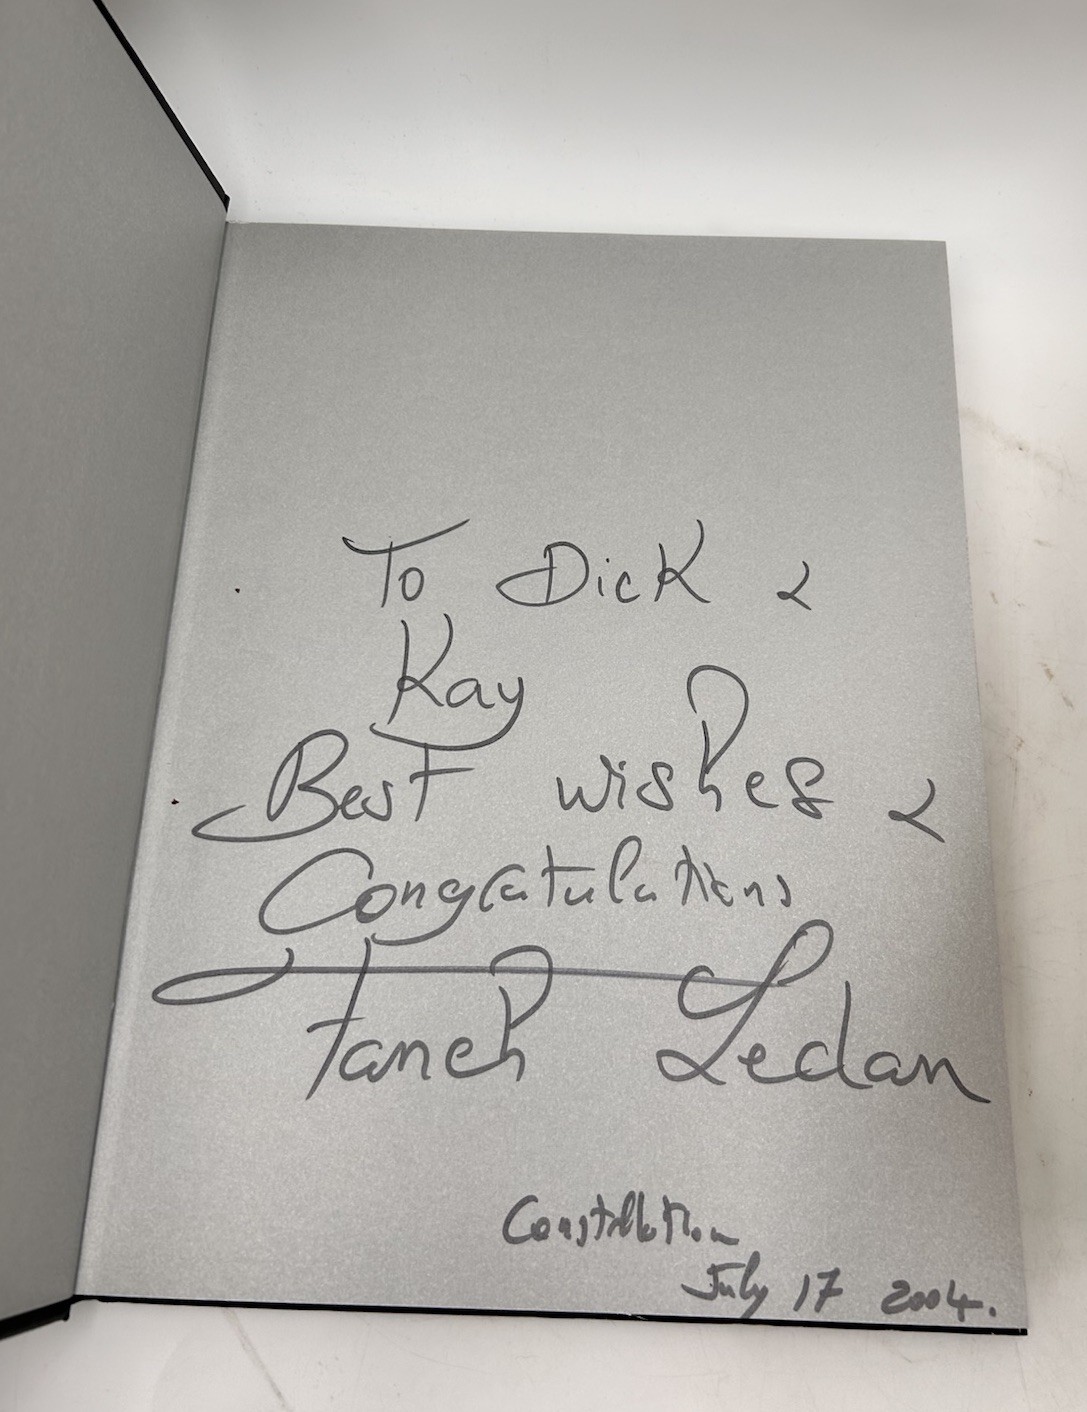 To Dick &
Kay
Best wishes &
Congratulations
Fanch Ledan
Constellation
July 17 2004.